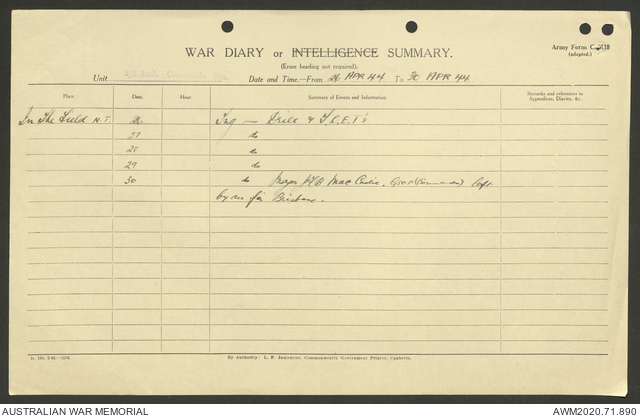 WAR DIARY or INTELLIGENCE SUMMARY.
Army Form C.
(adapted.)
(Erase heading not required).
Unit
Date and Time—From 26 APR 44 To 30 APR 44
Place. Date. Hour. Summary of Events and Information. Remarks and references to Appendices, Diaries, &c.
In The Field N.T. 26 Trg — Drill & T.O.E.T's
27 do
28 do
29 do
30 do Major Mac left
by air for Brisbane.
By Authority: L. F. Johnston, Commonwealth Government Printer, Canberra.
AUSTRALIAN WAR MEMORIAL
AWM2020.71.890